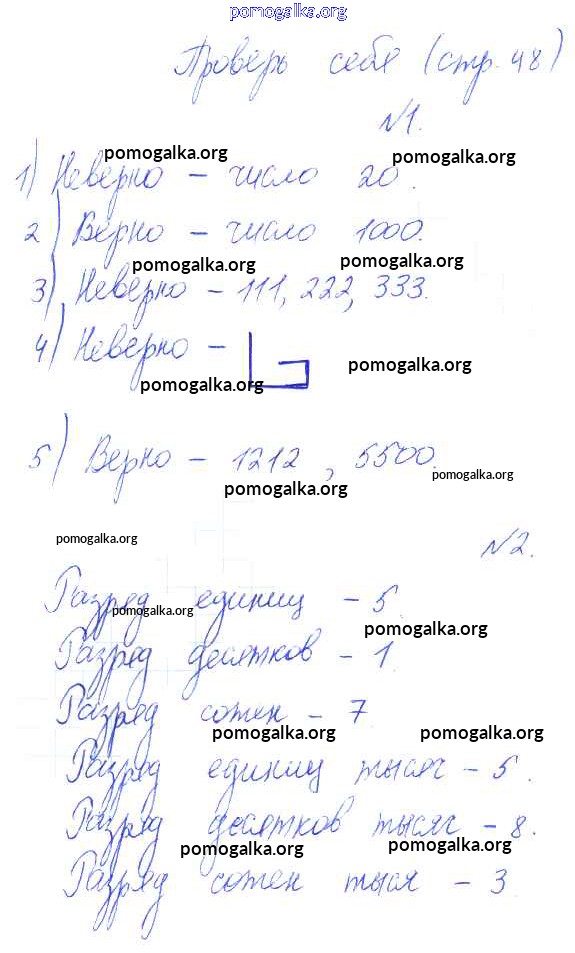 pomogalka.org
Проверь себя (стр. 48)
№1.
pomogalka.org pomogalka.org
1) Неверно – число 20.
2) Верно – число 1000.
pomogalka.org pomogalka.org
3) Неверно – 111, 222, 333.
4) Неверно –
pomogalka.org pomogalka.org
5) Верно – 1212, 5500.
pomogalka.org pomogalka.org
pomogalka.org
№2.
Разряд единиц – 5.
pomogalka.org pomogalka.org
Разряд десятков – 1.
Разряд сотен – 7
pomogalka.org pomogalka.org
Разряд единиц тысяч – 5.
Разряд десятков тысяч – 8.
pomogalka.org pomogalka.org
Разряд сотен тысяч – 3